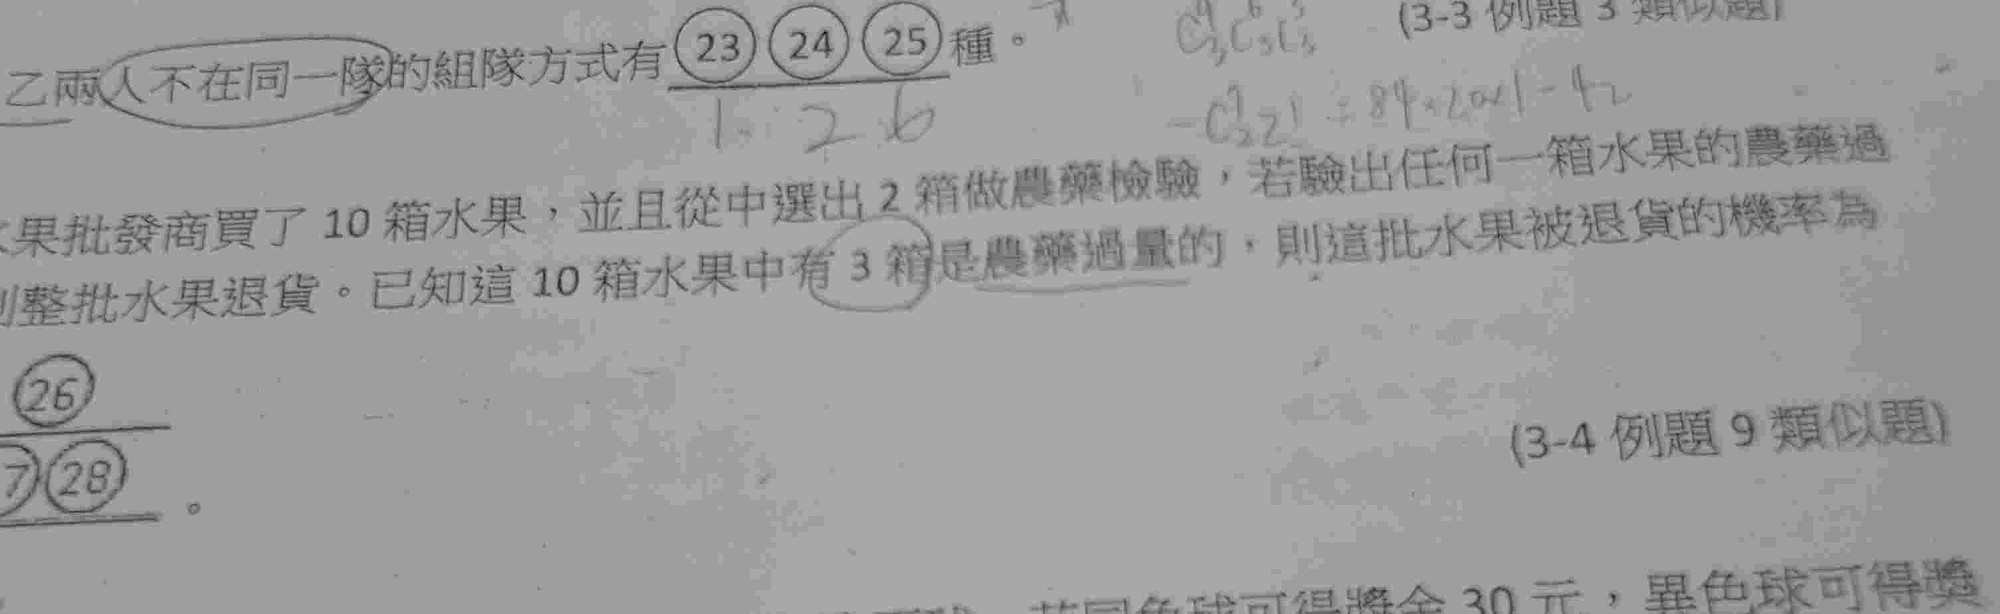 乙兩人不在同一隊的組隊方式有 23 24 25 種。
(3-3 例題 3 類似題)
1 2 6
果批發商買了 10 箱水果，並且從中選出 2 箱做農藥檢驗，若驗出任何一箱水果的農藥過
整批水果退貨。已知這 10 箱水果中有 3 箱是農藥過量的，則這批水果被退貨的機率為
26
7 28 。
(3-4 例題 9 類似題)
30 元，異色球可得獎